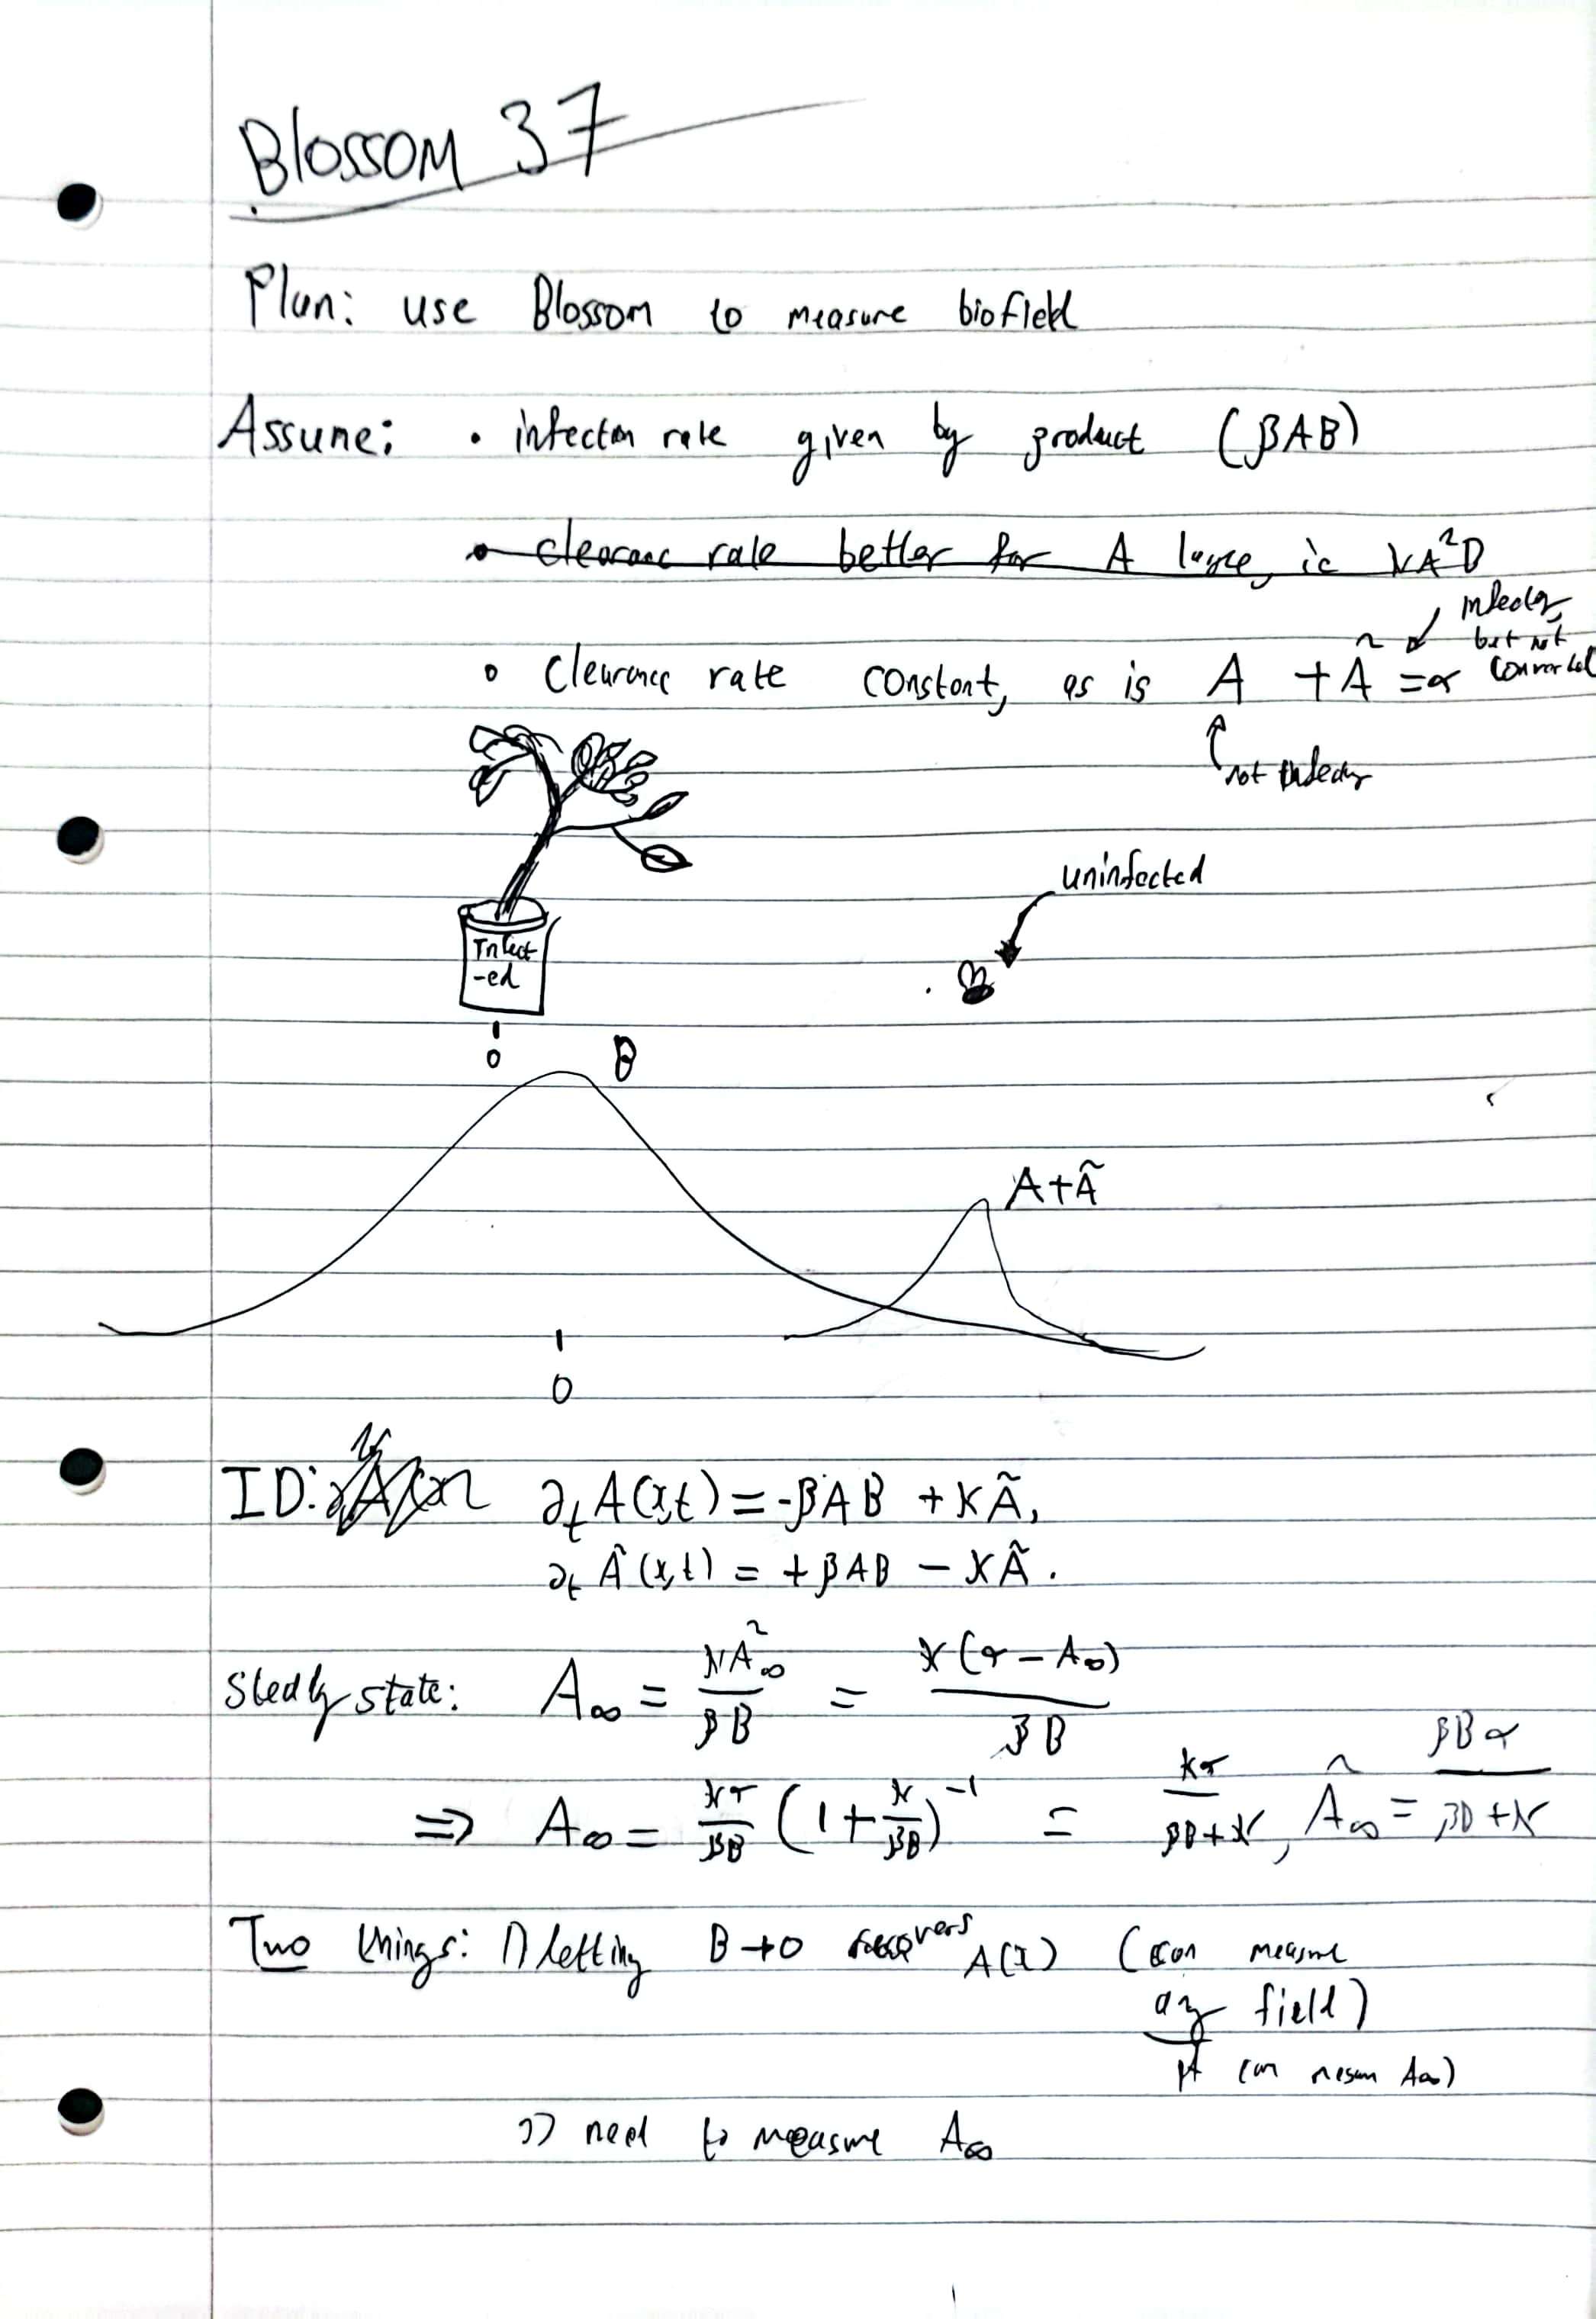 Blossom 37
Plan: use Blossom to measure biofield
Assume: • infection rate given by product (βAB)
• clearanc rate better for A large, ie κA²B
• Clearance rate constant, as is A + Ã = α
but not
not
uninfected
Infect
-ed
0
B
A+Ã
0
ID: ∂ₜA(x,t) = -βAB + κÃ,
∂ₜÃ(x,t) = +βAB - κÃ.
Steady state: A∞ = κÃ∞/βB = κ(α - A∞)/βB
⇒ A∞ = κα/βB (1 + κ/βB)⁻¹ = κα/βB+κ, Ã∞ = βBα/βB+κ
Two things: 1) letting B→0 recovers A(x) (can measure
any field)
if can measure A∞)
2) need to measure A∞